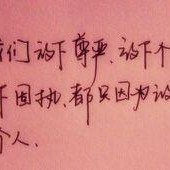 我们放下尊严、放下个
下固执，都只因为放
个人.